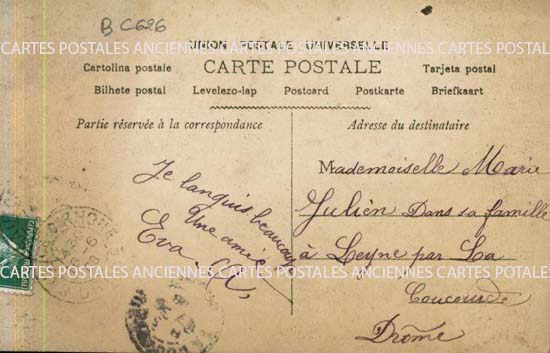 B C626
UNION POSTALE UNIVERSELLE
CARTES POSTALES ANCIENNES CARTES POSTALES ANCIENNES CARTES POSTALES
Cartolina postale
CARTE POSTALE
Tarjeta postal
Bilhete postal Levelezo-lap Postcard Postkarte Briefkaart
Partie réservée à la correspondance
Adresse du destinataire
Je languis beaucoup
Une amie
Eva
Mademoiselle Marie
Julien Dans sa famille
à Leyne par La
Coucourde
Drôme
CARTES POSTALES ANCIENNES CARTES POSTALES ANCIENNES CARTES POSTALES